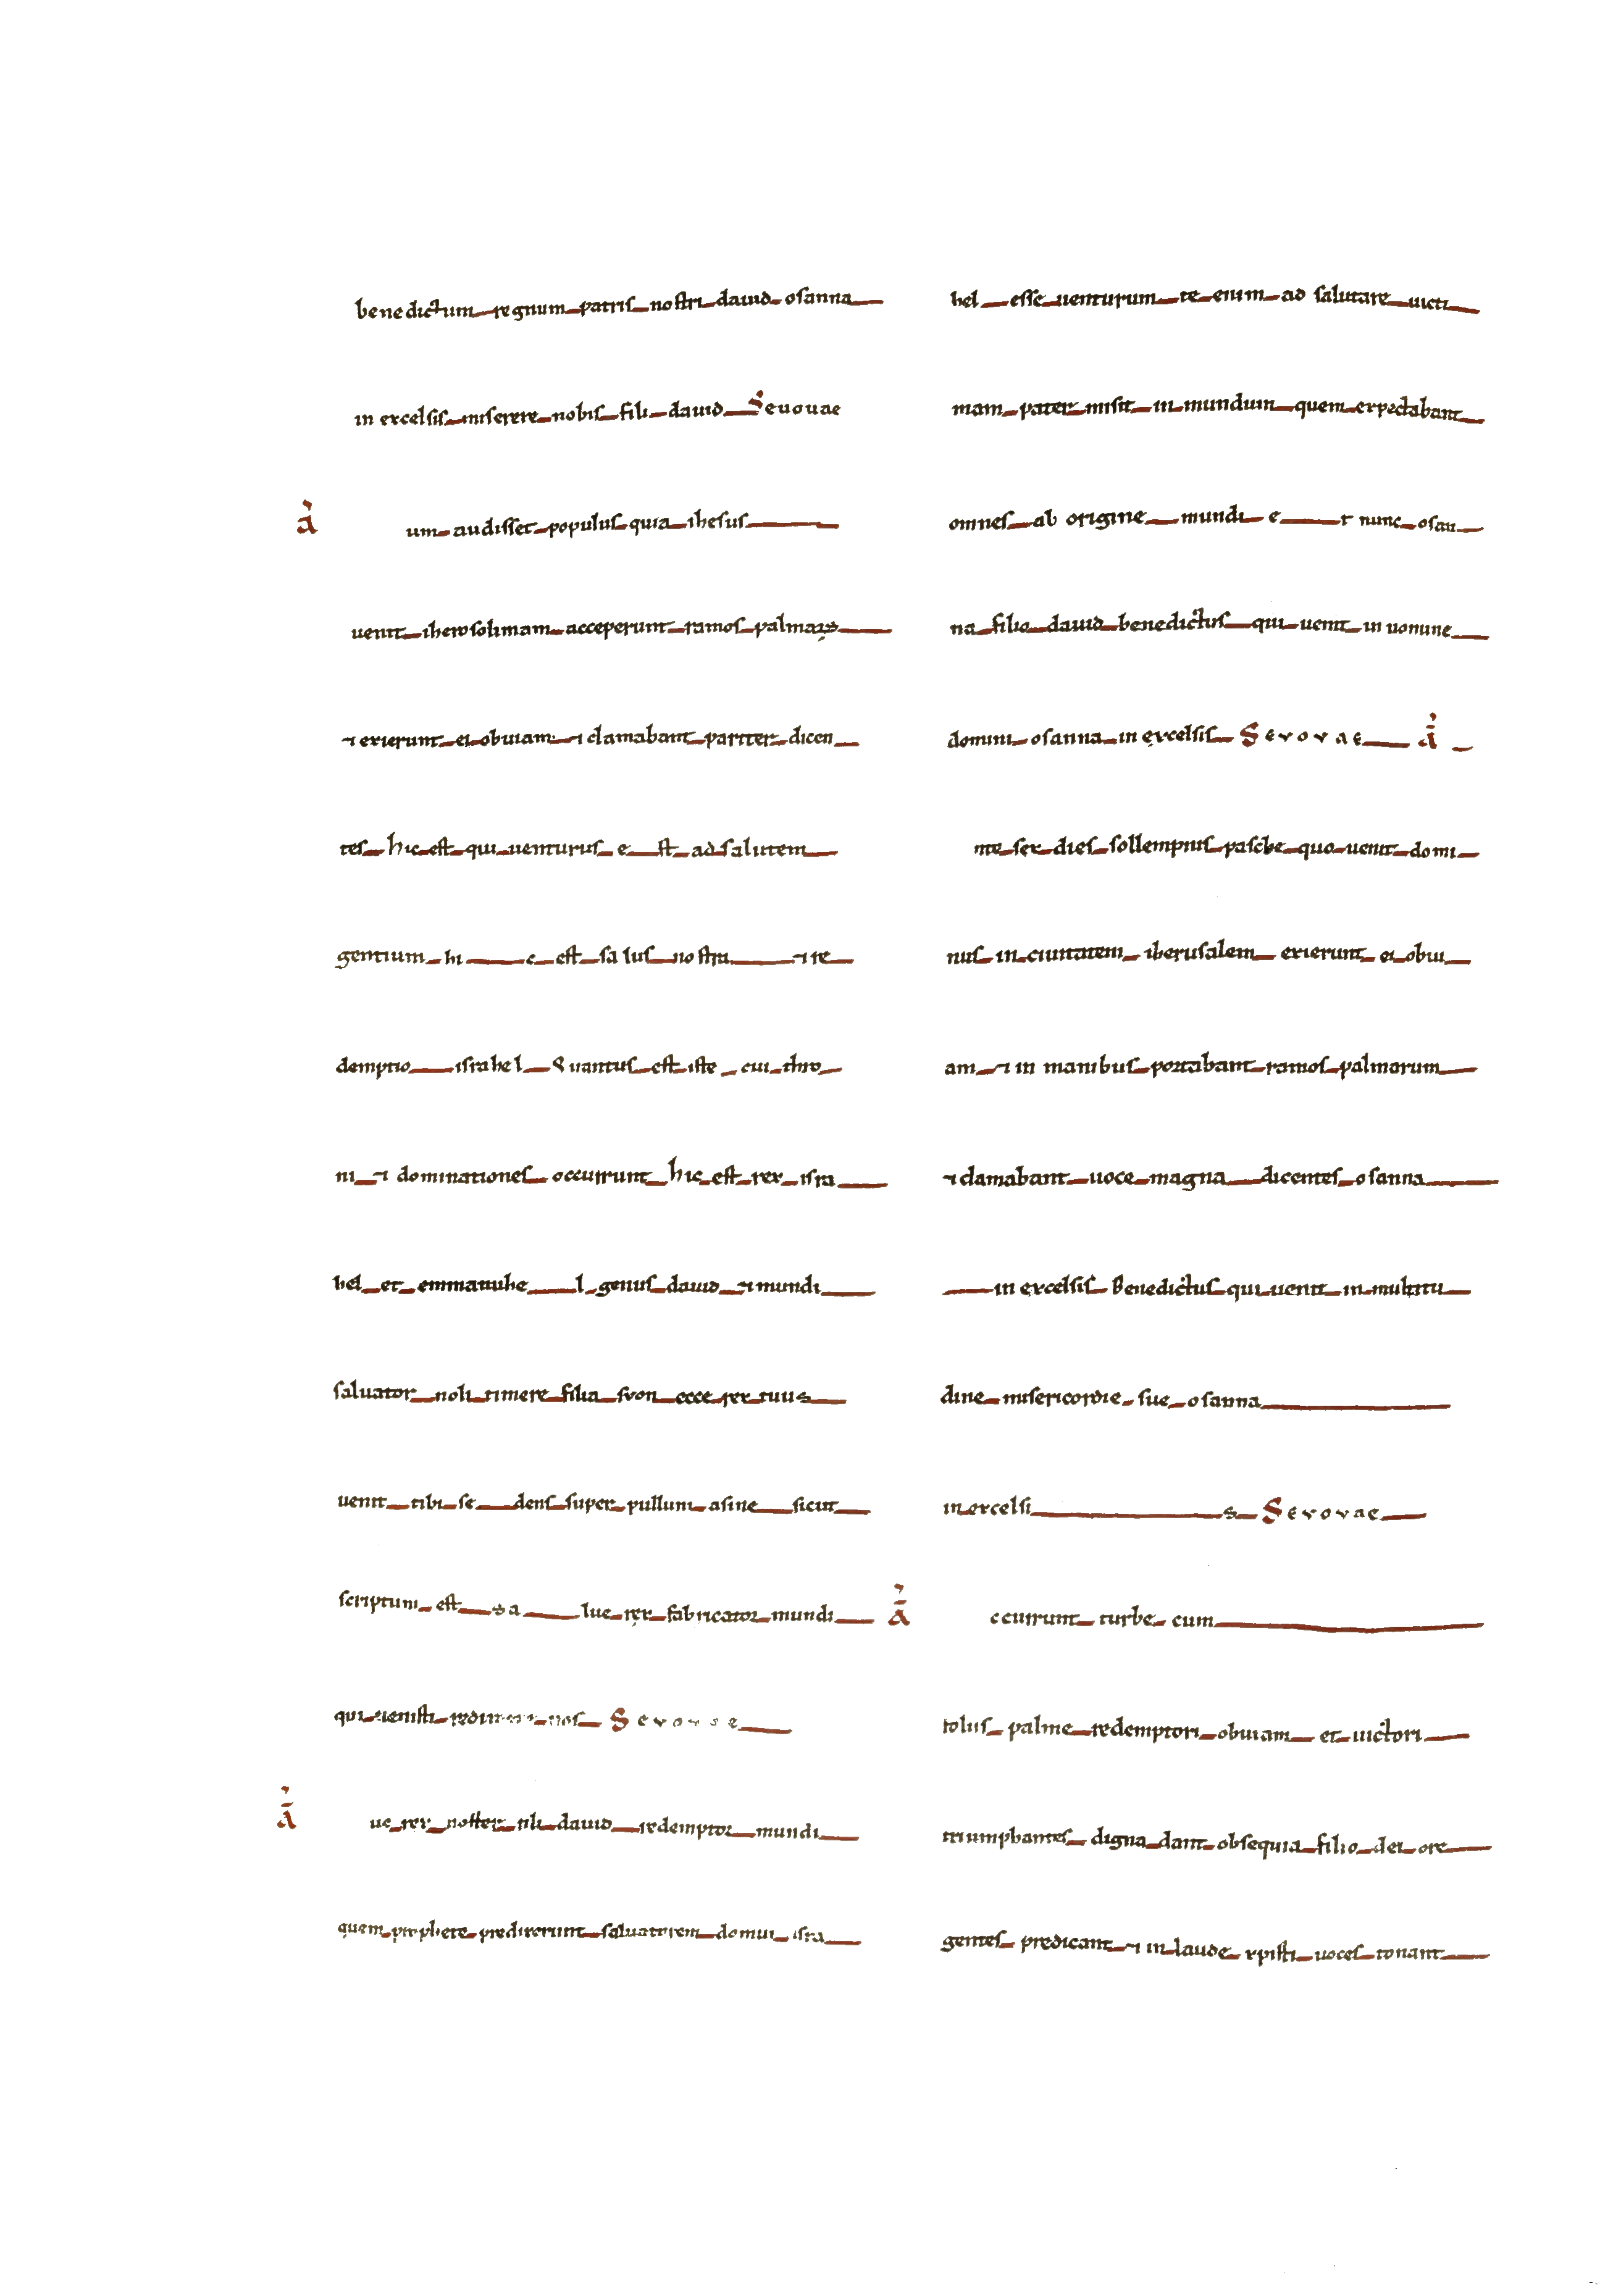 benedictum regnum patris nostri dauid osanna
in excelsis miserere nobis fili dauid Seuouae
ā um audisset populus quia ihesus
uenit iherosolimam acceperunt ramos palmaꝝ
⁊ exierunt ei obuiam ⁊ clamabant pariter dicen
tes hic est qui uenturus e st ad salutem
gentium hi c est salus nostra ⁊ re
demptio israhel Quantus est iste cui thro
ni ⁊ dominationes occurrunt hic est rex isra
hel et emmanuhe l genus dauid ⁊ mundi
saluator noli timere filia syon ecce rex tuus
uenit tibi se dens super pullum asine sicut
scriptum est sa lue rex fabricator mundi
qui uenisti redimere nos Sevovae
ā ue rex noster fili dauid redemptor mundi
quem prophete predixerunt saluatorem domui isra
hel esse uenturum te enim ad salutare uicti
mam pater misit in mundum quem expectabant
omnes ab origine mundi e t nunc osan
na filio dauid benedictus qui uenit in nomine
domini osanna in excelsis Sevovae ā
nte sex dies sollempnis pasche quo uenit domi
nus in ciuitatem iherusalem exierunt ei obui
am ⁊ in manibus portabant ramos palmarum
⁊ clamabant uoce magna dicentes osanna
in excelsis Benedictus qui uenit in multitu
dine misericordie sue osanna
in excelsi s Sevovae
ā ccurrunt turbe cum
tolus palme redemptori obuiam et uictori
triumphantes digna dant obsequia filio dei ore
gentes predicant ⁊ in laude xpisti uoces tonant